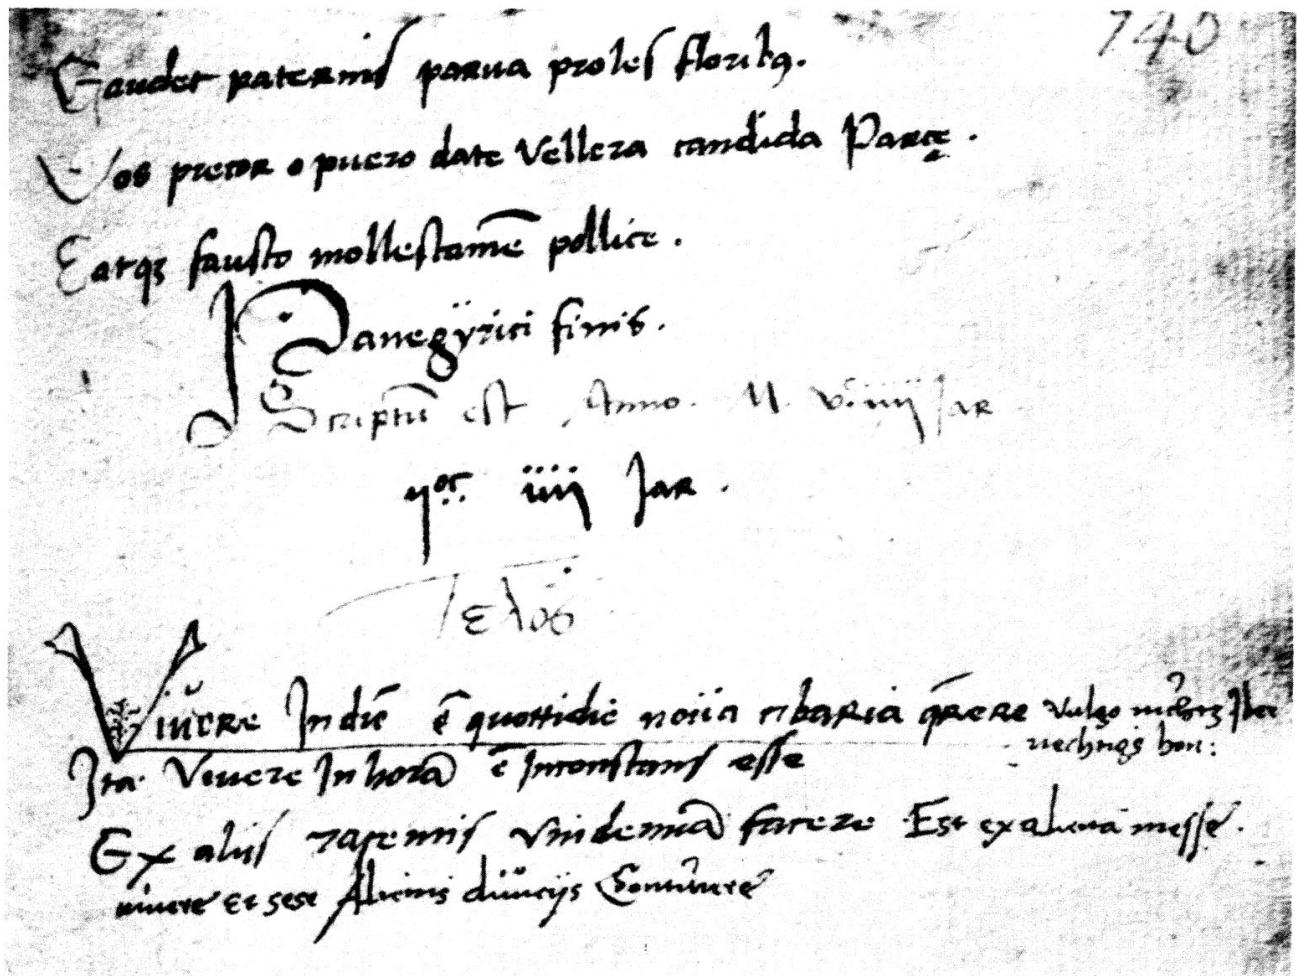 740
Gaudet paternis parva proles floribꝫ.
Vos precor o puero date vellera candida Parcę.
Eatqꝫ fausto mollestamē pollice.
Panegÿrici finis.
Scriptū est Anno. M. vᶜ. iiij Jar
iiij Jar.
Τελος
Viuere In diē ē quottidie noua cibaria q̄rere vulgo
Ita Viuere In horā ē Inconstans esse
Ex aliis racemis vindemiā facere Est ex aliena messe.
viuere Et sese Alienis diuicijs